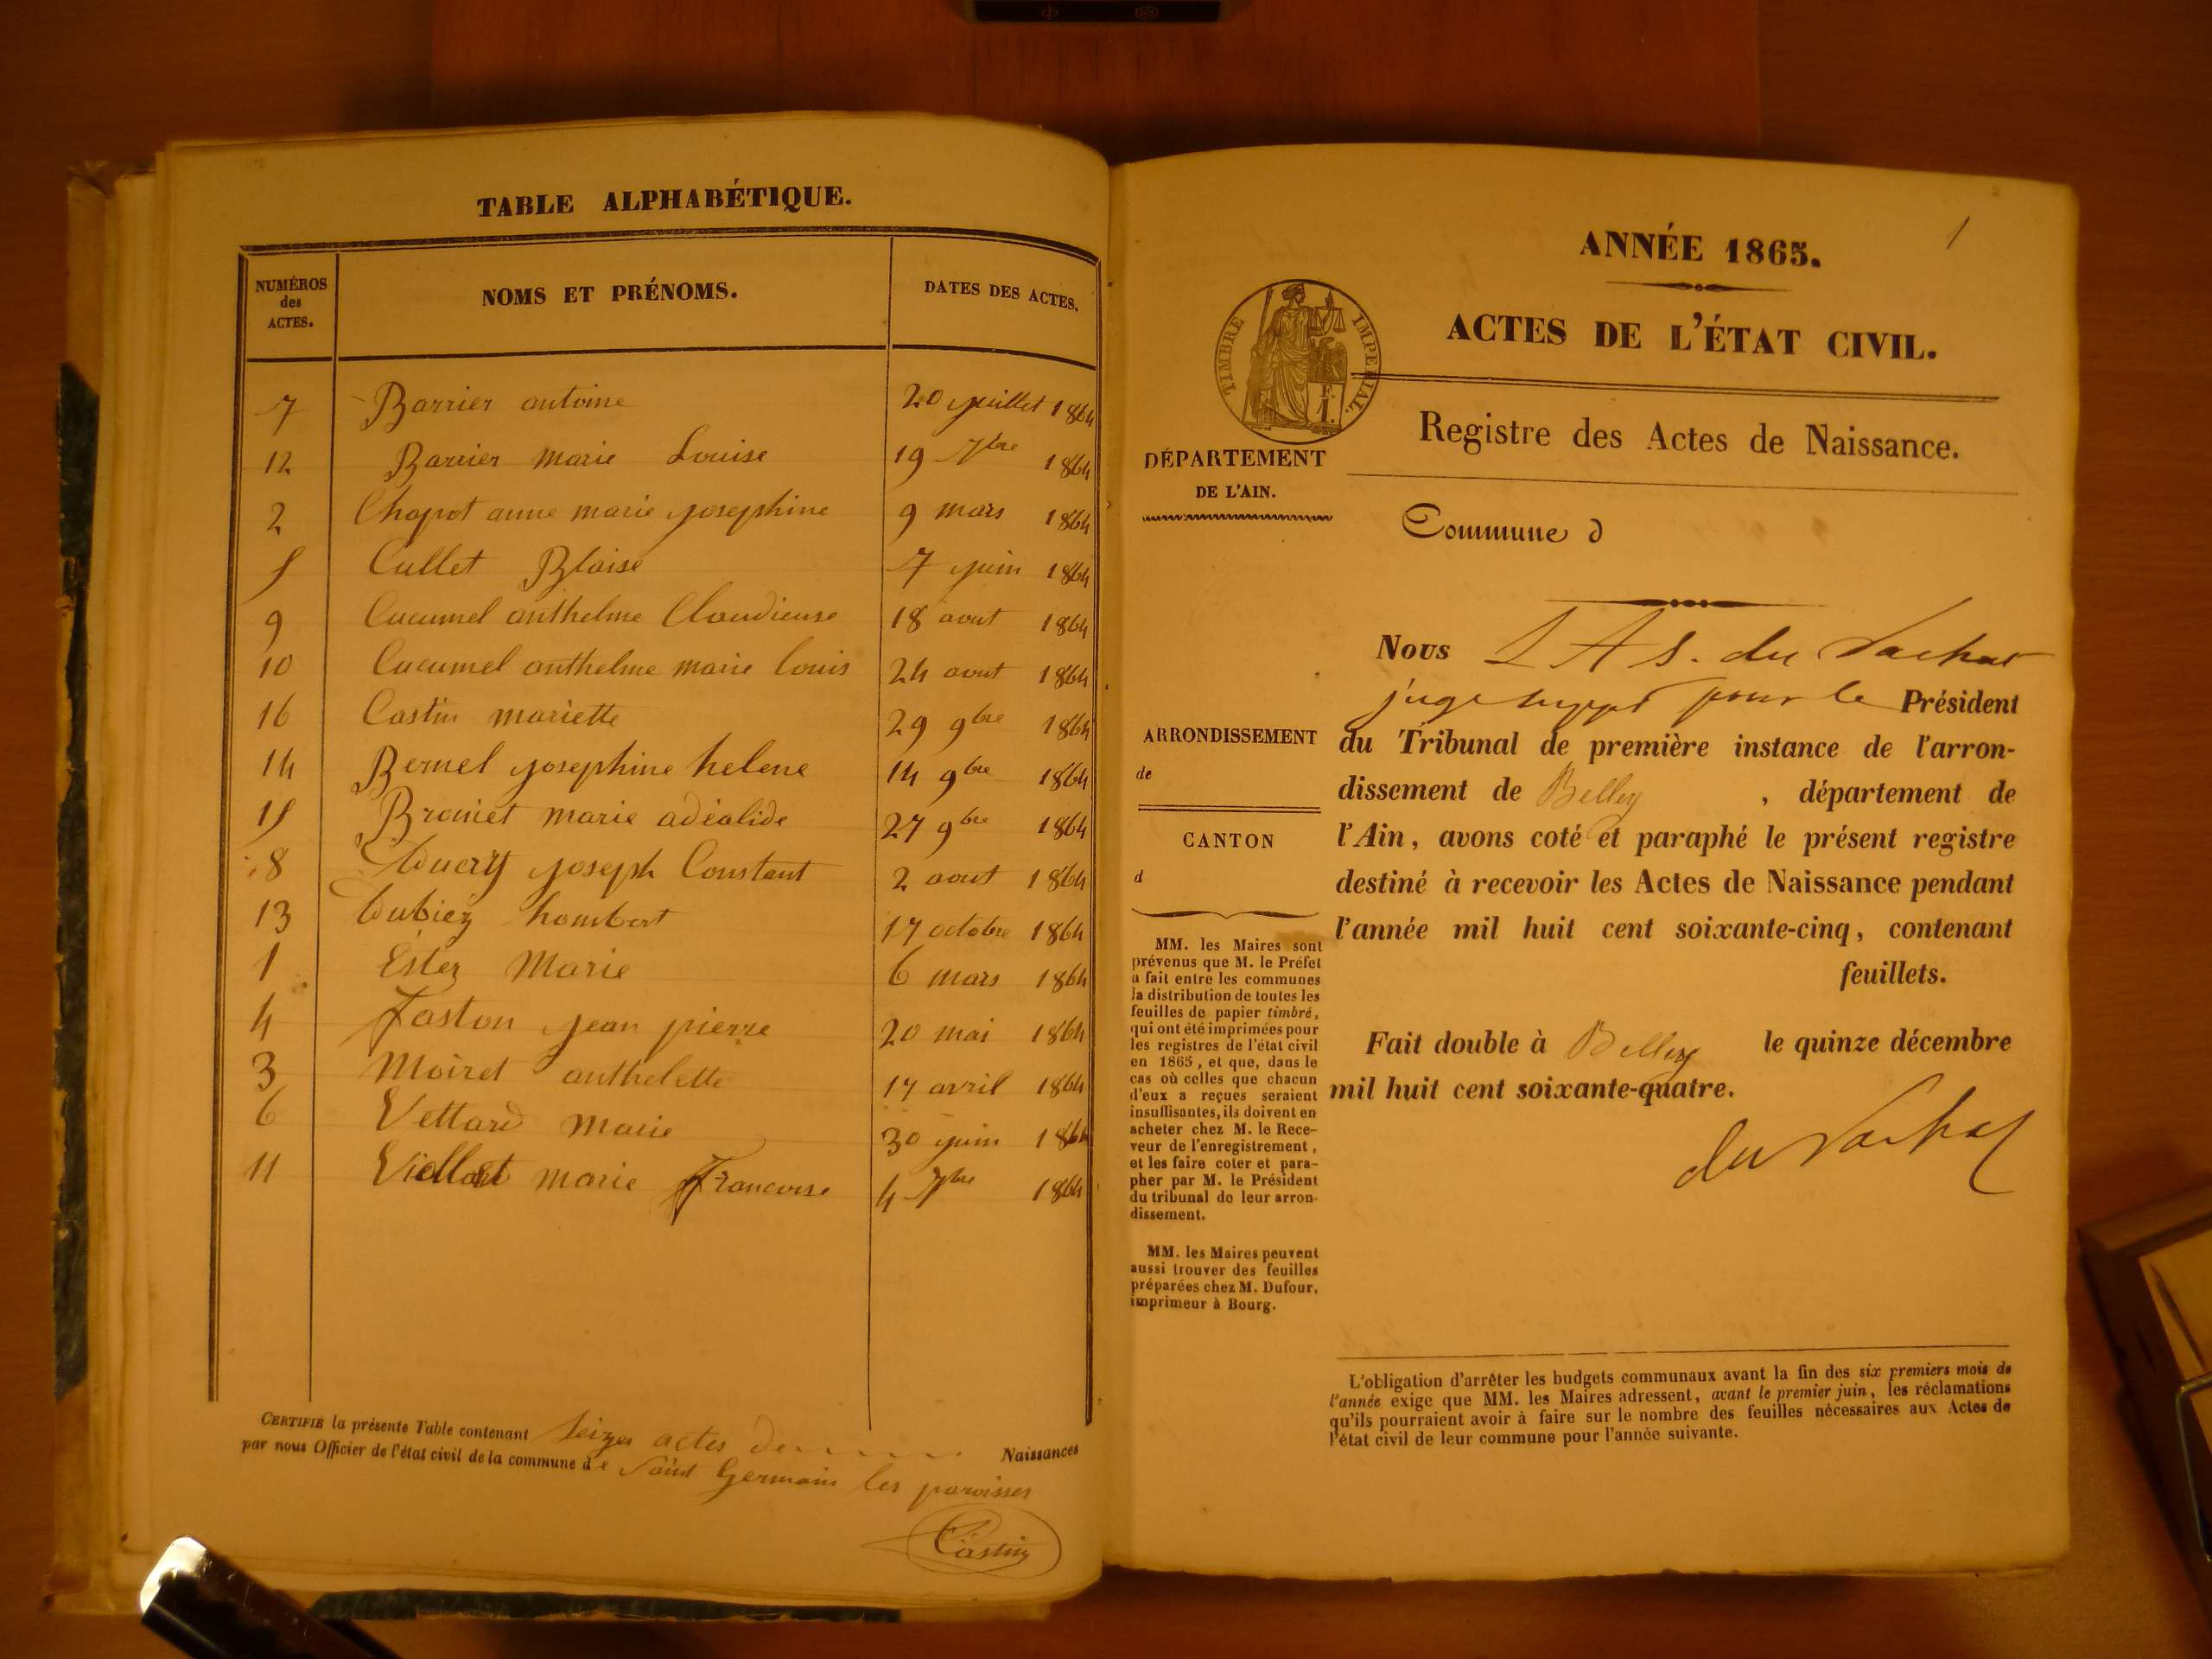 TABLE ALPHABÉTIQUE.
NUMÉROS des ACTES. NOMS ET PRÉNOMS. DATES DES ACTES.
7 Barrier antoine 20 juillet 1864
12 Barrier marie Louise 19 7bre 1864
2 Chapot anne marie josephine 9 mars 1864
5 Cullet Blaise 7 juin 1864
9 Cucumel anthelme Claudieuse 18 aout 1864
10 Cucumel anthelme marie louis 24 aout 1864
16 Castin mariette 29 9bre 1864
14 Bernel josephine helene 14 9bre 1864
15 Broniet marie adéalide 27 9bre 1864
8 Ducry joseph Constant 2 aout 1864
13 Dubiez hombert 17 octobre 1864
1 Estez Marie 6 mars 1864
4 Faston jean pierre 20 mai 1864
3 Moiret anthelette 17 avril 1864
6 Vettard marie 30 juin 1864
11 marie Francoise 4 7bre 1864
CERTIFIÉ la présente Table contenant Seizes actes de Naissances
par nous Officier de l'état civil de la commune de Saint Germain les paroisses
Castin
1
ANNÉE 1865.
ACTES DE L'ÉTAT CIVIL.
TIMBRE IMPERIAL.
F.
1.
Registre des Actes de Naissance.
DÉPARTEMENT
DE L'AIN.
Commune d
ARRONDISSEMENT
de
CANTON
d
MM. les Maires sont
prévenus que M. le Préfet
a fait entre les communes
la distribution de toutes les
feuilles de papier timbré,
qui ont été imprimées pour
les registres de l'état civil
en 1865, et que, dans le
cas où celles que chacun
d'eux a reçues seraient
insuffisantes, ils doivent en
acheter chez M. le Rece-
veur de l'enregistrement,
et les faire coter et para-
pher par M. le Président
du tribunal de leur arron-
dissement.
MM. les Maires peuvent
aussi trouver des feuilles
préparées chez M. Dufour,
imprimeur à Bourg.
Nous L A S. du Vachat
juge suppt pour le Président
du Tribunal de première instance de l'arron-
dissement de Belley, département de
l'Ain, avons coté et paraphé le présent registre
destiné à recevoir les Actes de Naissance pendant
l'année mil huit cent soixante-cinq, contenant
feuillets.
Fait double à Belley le quinze décembre
mil huit cent soixante-quatre.
du Vachat
L'obligation d'arrêter les budgets communaux avant la fin des six premiers mois de
l'année exige que MM. les Maires adressent, avant le premier juin, les réclamations
qu'ils pourraient avoir à faire sur le nombre des feuilles nécessaires aux Actes de
l'état civil de leur commune pour l'année suivante.